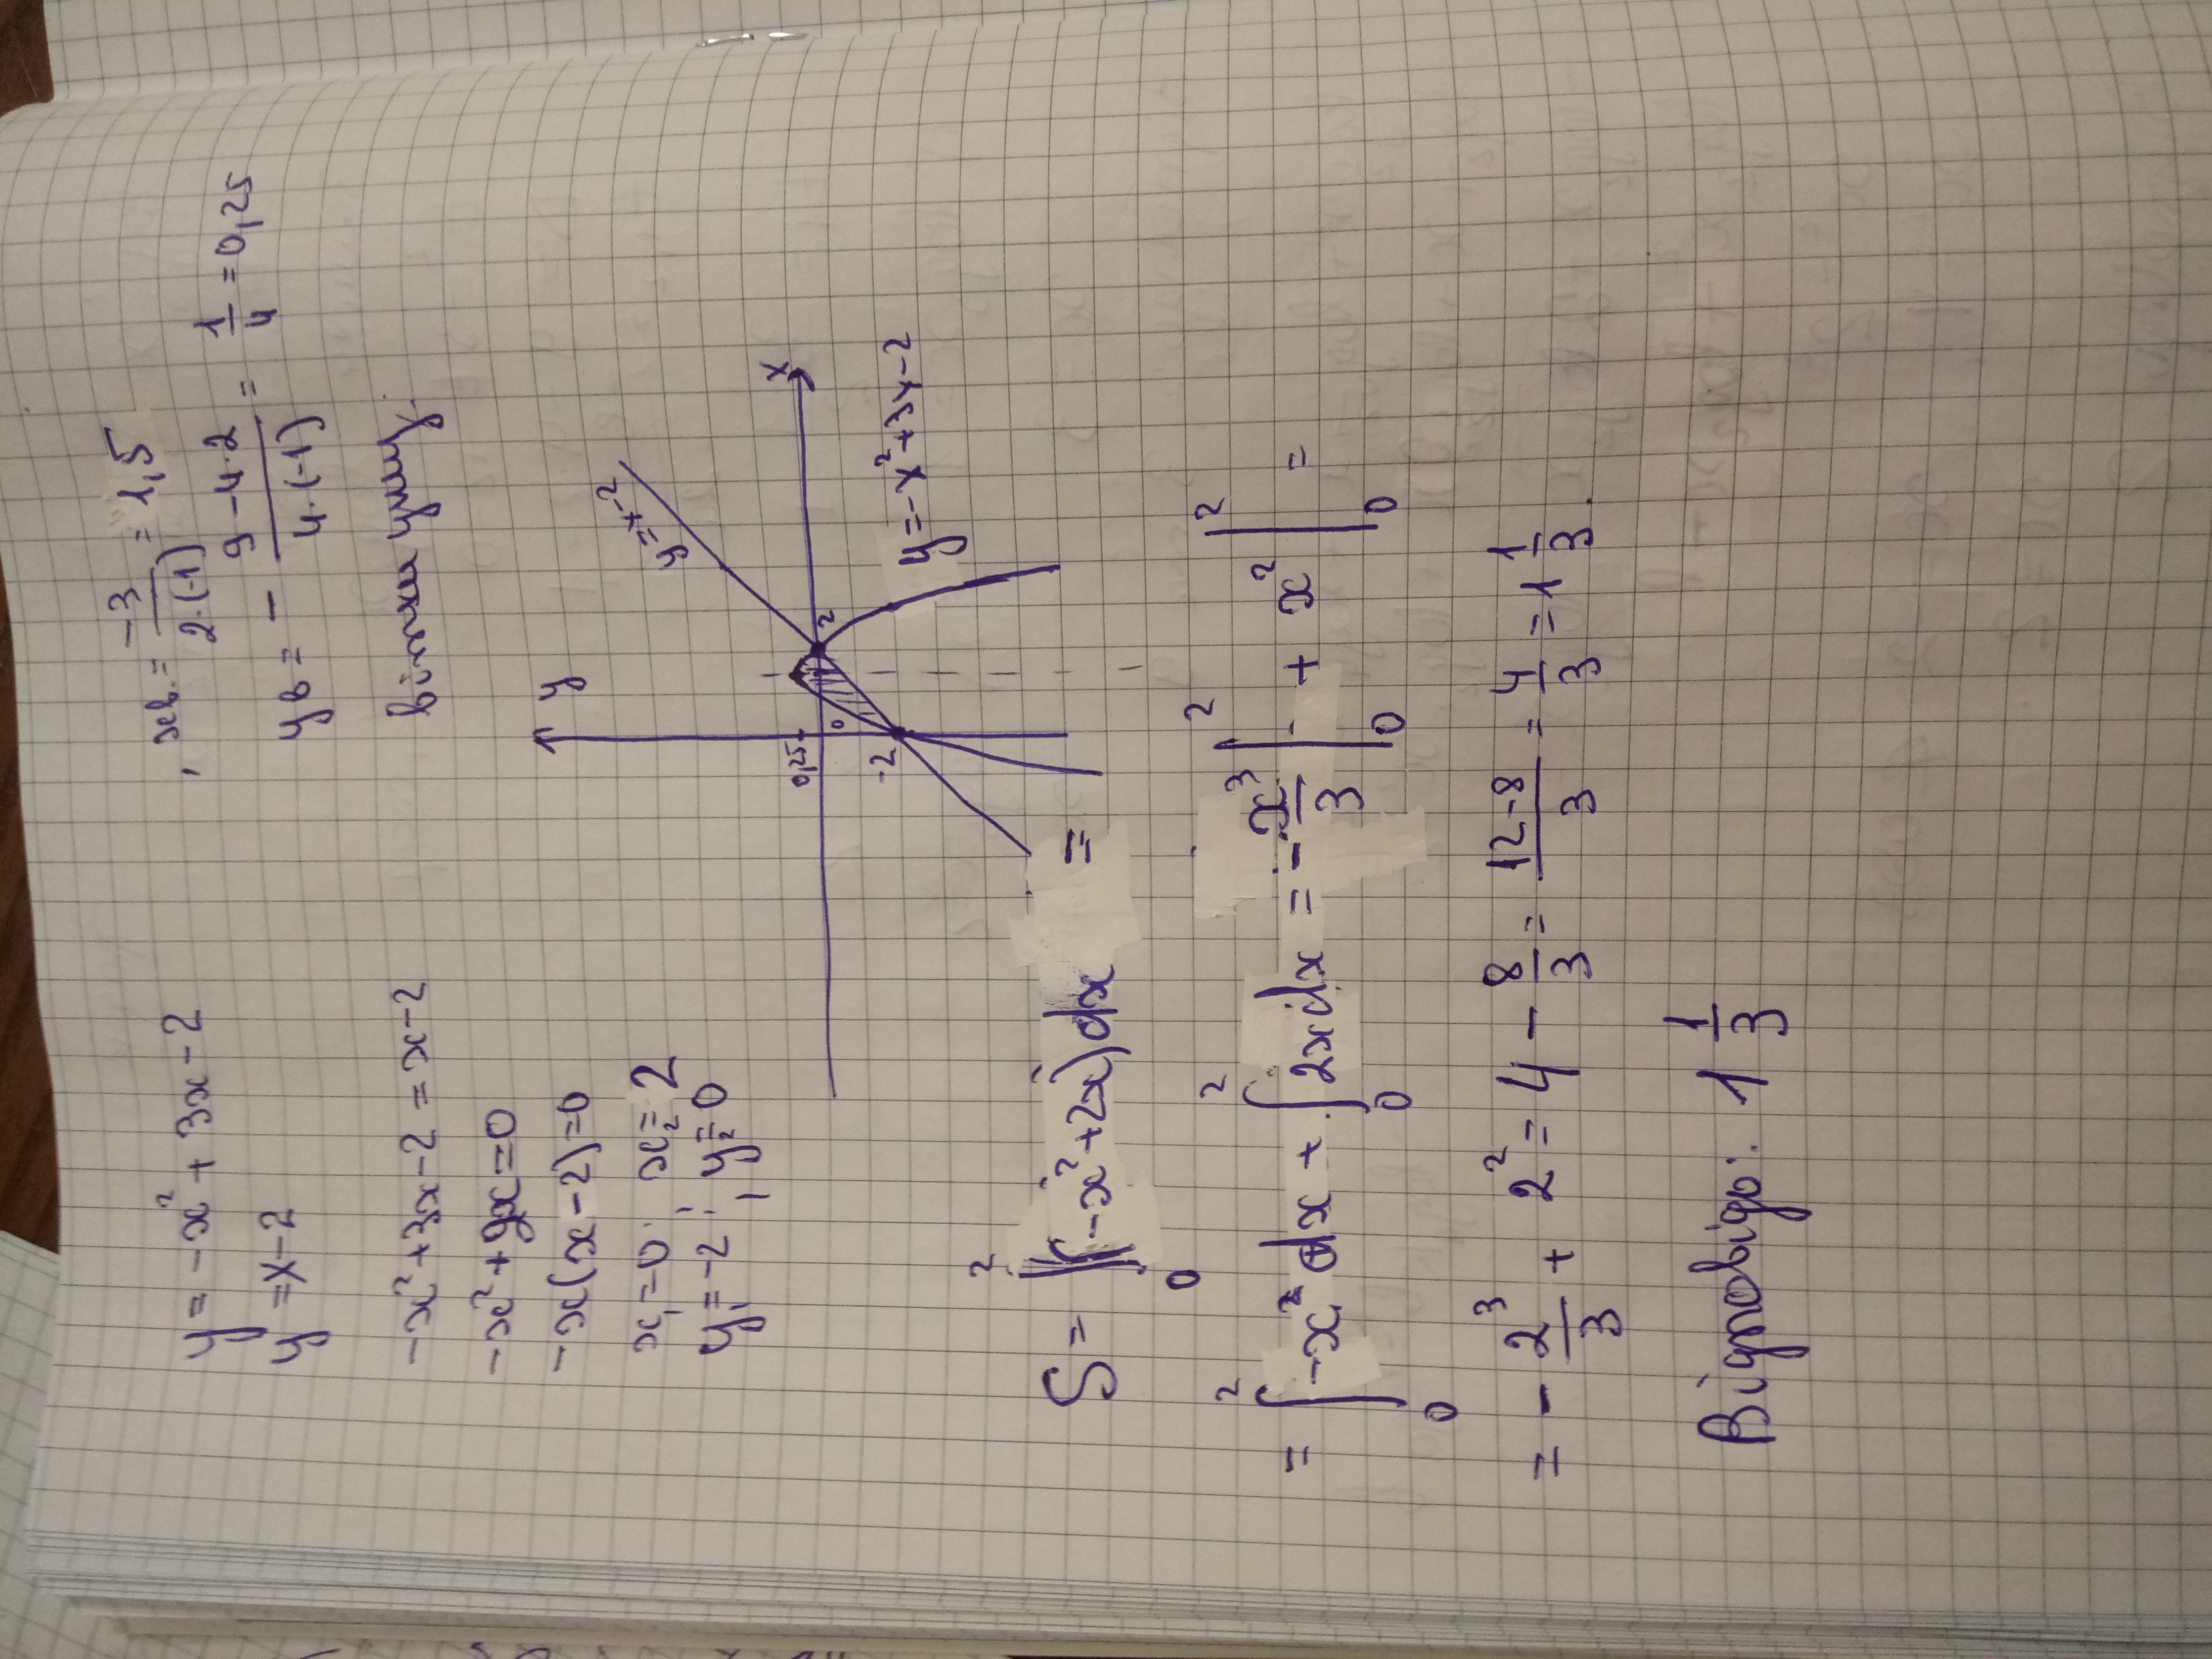 y = -x² + 3x - 2
y = x - 2
-x² + 3x - 2 = x - 2
-x² + 2x = 0
-x(x - 2) = 0
x₁ = 0; x₂ = 2
y₁ = -2; y₂ = 0
, xв. = -3/(2·(-1)) = 1,5
yв = - (9 - 4·2)/(4·(-1)) = 1/4 = 0,25
вітки униз.
y
y = x - 2
x
0,25
0
2
-2
y = -x² + 3x - 2
S = ∫₀² (-x² + 2x) dx =
= ∫₀² -x² dx + ∫₀² 2x dx = - x³/3 |₀² + x² |₀² =
= - 2³/3 + 2² = 4 - 8/3 = (12 - 8)/3 = 4/3 = 1 1/3.
Відповідь: 1 1/3